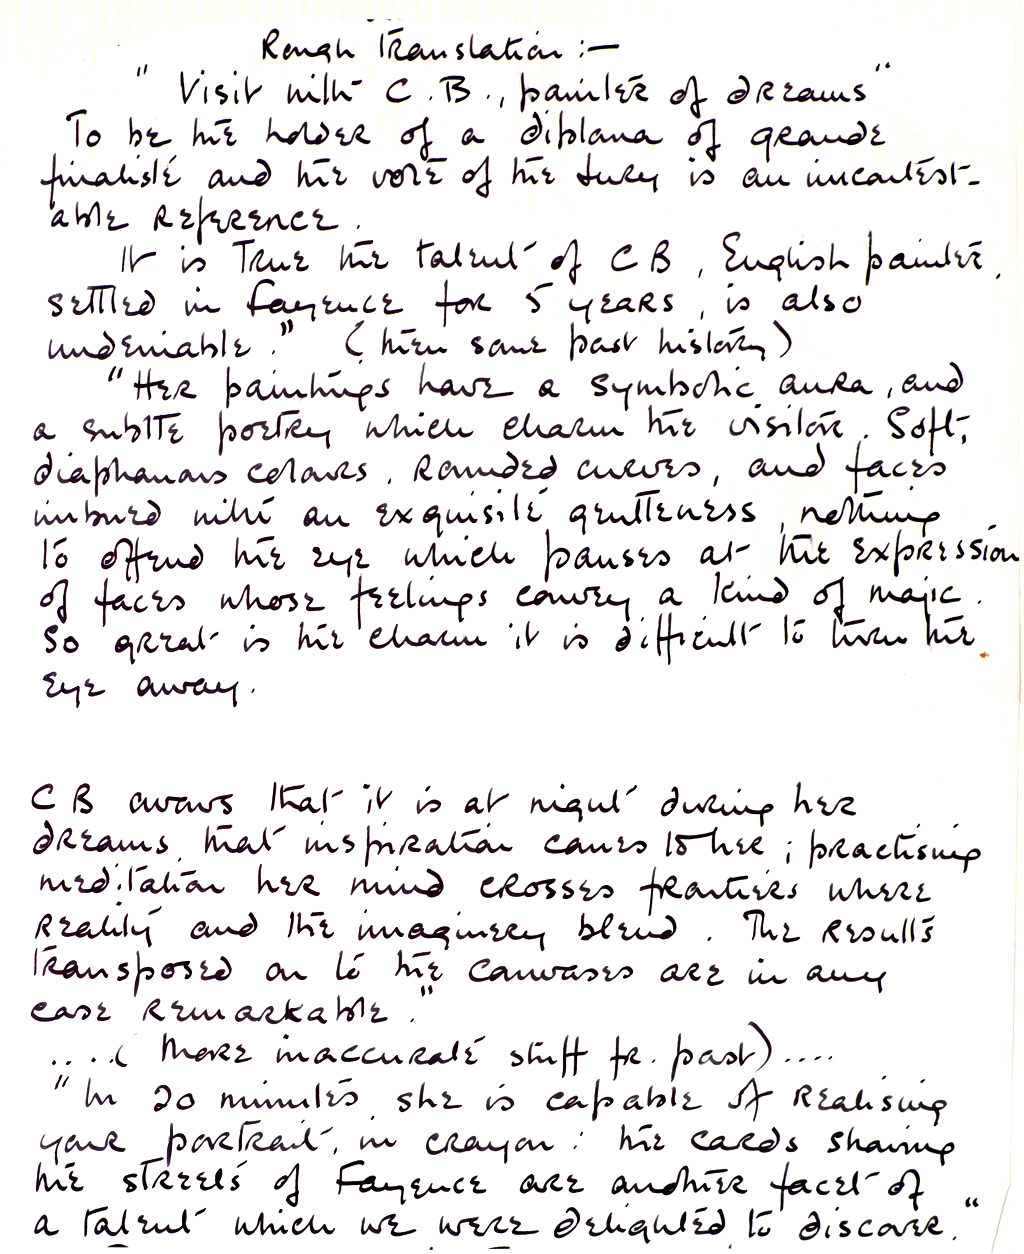 Rough Translation :—
"Visit with C.B., painter of dreams"
To be the holder of a diploma of grande
finaliste and the vote of the Jury is an incontest-
able reference.
It is True the talent of C B, English painter,
settled in Fayence for 5 years, is also
undeniable." (then some past history)
"Her paintings have a symbolic aura, and
a subtle poetry which charm the visitor. Soft,
diaphanous colours, rounded curves, and faces
imbued with an exquisite gentleness, nothing
to offend the eye which pauses at the expression
of faces whose feelings convey a kind of majic.
So great is the charm it is difficult to turn the
eye away.
C B avows that it is at night during her
dreams that inspiration comes to her; practising
meditation her mind crosses frontiers where
reality and the imaginery blend. The results
transposed on to the canvases are in any
case remarkable."
....( More inaccurate stuff fr. past)....
"In 20 minutes she is capable of realising
your portrait, in crayon: the cards showing
the streets of Fayence are another facet of
a talent which we were delighted to discover."